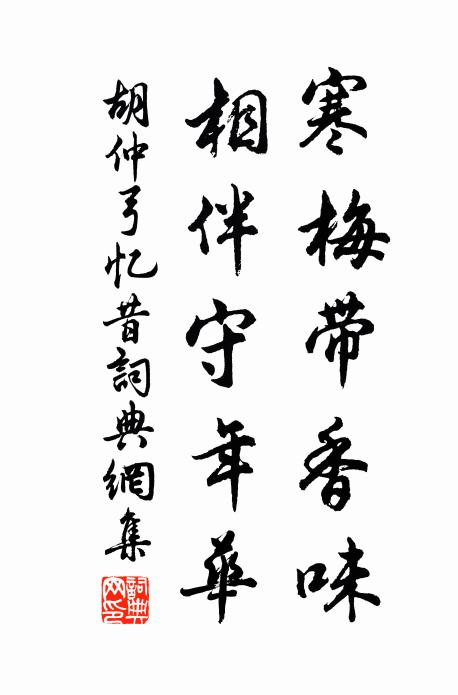 寒梅带香味
相伴守年華
胡仲弓忆昔詞典網集
詞典網印